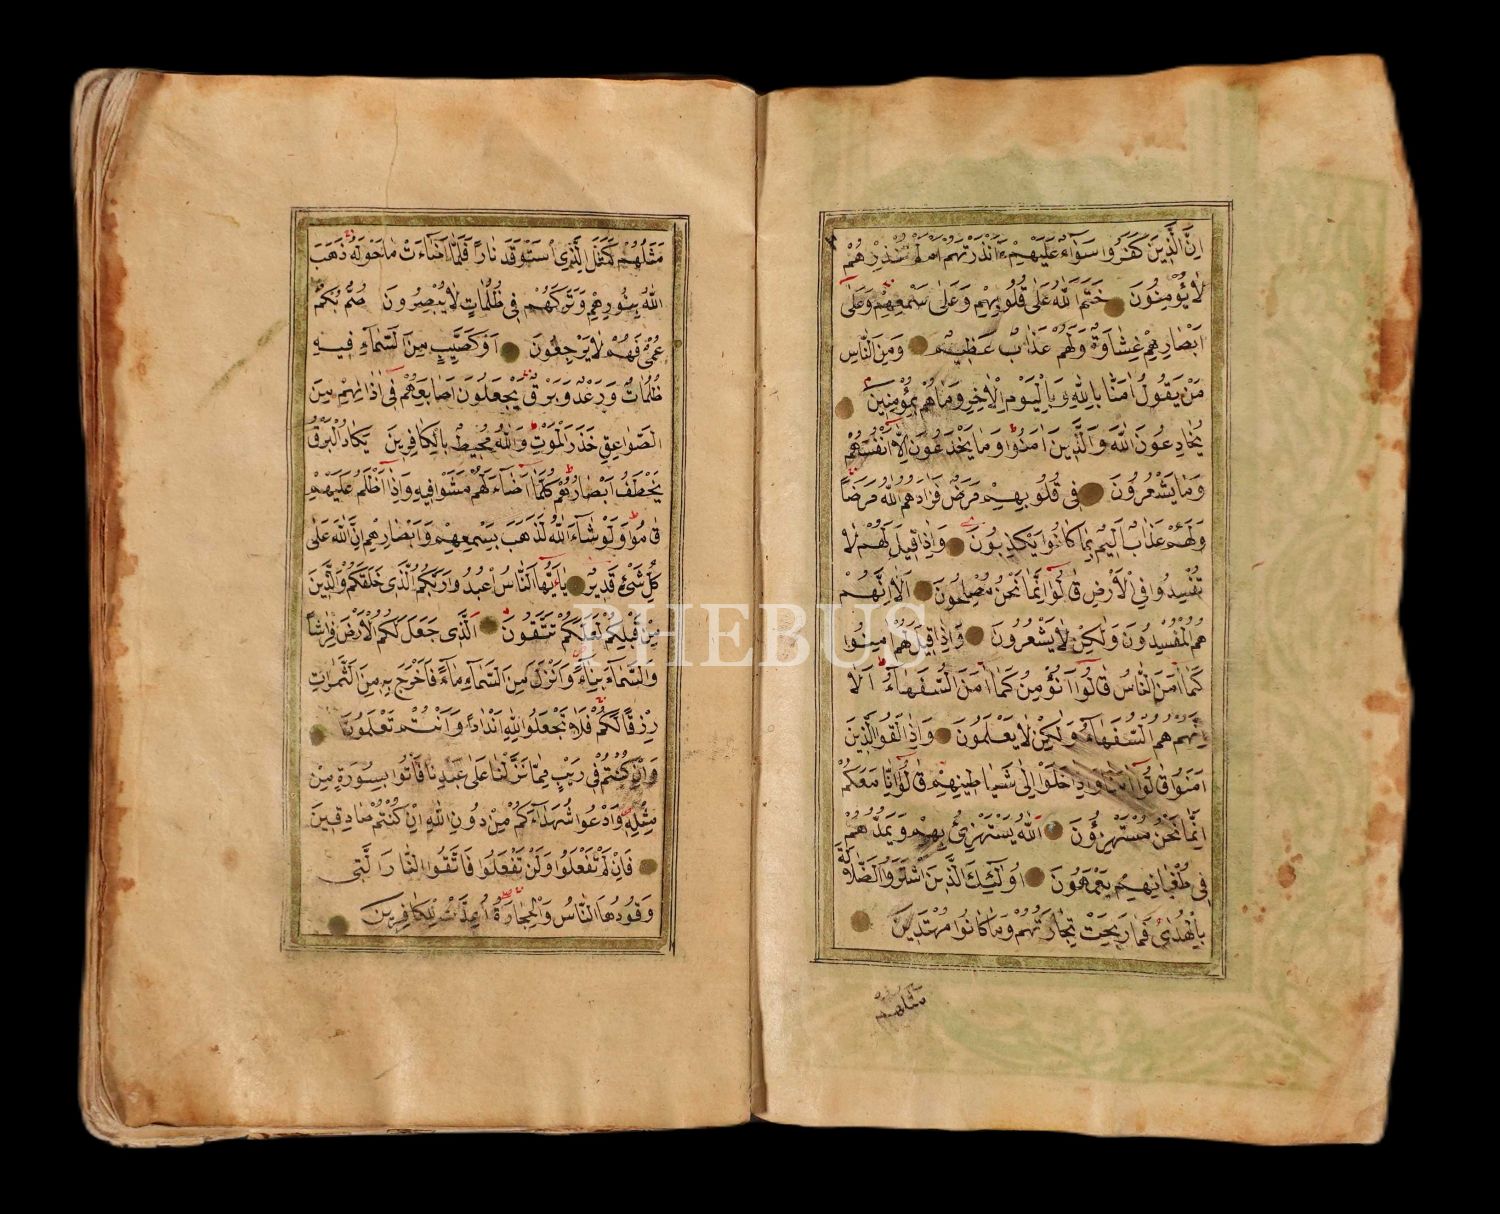 اِنَّ الَّذٖينَ كَفَرُوا سَوَٓاءٌ عَلَيْهِمْ ءَاَنْذَرْتَهُمْ اَمْ لَمْ تُنْذِرْهُمْ
لَا يُؤْمِنُونَ خَتَمَ اللّٰهُ عَلٰى قُلُوبِهِمْ وَعَلٰى سَمْعِهِمْ وَعَلٰٓى
اَبْصَارِهِمْ غِشَاوَةٌ وَلَهُمْ عَذَابٌ عَظٖيمٌ وَمِنَ النَّاسِ
مَنْ يَقُولُ اٰمَنَّا بِاللّٰهِ وَبِالْيَوْمِ الْاٰخِرِ وَمَا هُمْ بِمُؤْمِنٖينَ
يُخَادِعُونَ اللّٰهَ وَالَّذٖينَ اٰمَنُوا وَمَا يَخْدَعُونَ اِلَّٓا اَنْفُسَهُمْ
وَمَا يَشْعُرُونَ فٖى قُلُوبِهِمْ مَرَضٌ فَزَادَهُمُ اللّٰهُ مَرَضًا
وَلَهُمْ عَذَابٌ اَلٖيمٌ بِمَا كَانُوا يَكْذِبُونَ وَاِذَا قٖيلَ لَهُمْ لَا
تُفْسِدُوا فِى الْاَرْضِ قَالُٓوا اِنَّمَا نَحْنُ مُصْلِحُونَ اَلَٓا اِنَّهُمْ
هُمُ الْمُفْسِدُونَ وَلٰكِنْ لَا يَشْعُرُونَ وَاِذَا قٖيلَ لَهُمْ اٰمِنُوا
كَمَٓا اٰمَنَ النَّاسُ قَالُٓوا اَنُؤْمِنُ كَمَٓا اٰمَنَ السُّفَهَٓاءُ اَلَٓا
اِنَّهُمْ هُمُ السُّفَهَٓاءُ وَلٰكِنْ لَا يَعْلَمُونَ وَاِذَا لَقُوا الَّذٖينَ
اٰمَنُوا قَالُٓوا اٰمَنَّا وَاِذَا خَلَوْا اِلٰى شَيَاطٖينِهِمْ قَالُٓوا اِنَّا مَعَكُمْ
اِنَّمَا نَحْنُ مُسْتَهْزِؤُنَ اَللّٰهُ يَسْتَهْزِئُ بِهِمْ وَيَمُدُّهُمْ
فٖى طُغْيَانِهِمْ يَعْمَهُونَ اُولٰٓئِكَ الَّذٖينَ اشْتَرَوُا الضَّلَالَةَ
بِالْهُدٰى فَمَا رَبِحَتْ تِجَارَتُهُمْ وَمَا كَانُوا مُهْتَدٖينَ
مَثَلُهُمْ
مَثَلُهُمْ كَمَثَلِ الَّذِى اسْتَوْقَدَ نَارًا فَلَمَّٓا اَضَٓاءَتْ مَا حَوْلَهُ ذَهَبَ
اللّٰهُ بِنُورِهِمْ وَتَرَكَهُمْ فٖى ظُلُمَاتٍ لَا يُبْصِرُونَ صُمٌّ بُكْمٌ
عُمْىٌ فَهُمْ لَا يَرْجِعُونَ اَوْ كَصَيِّبٍ مِنَ السَّمَٓاءِ فٖيهِ
ظُلُمَاتٌ وَرَعْدٌ وَبَرْقٌ يَجْعَلُونَ اَصَابِعَهُمْ فٖٓى اٰذَانِهِمْ مِنَ
الصَّوَاعِقِ حَذَرَ الْمَوْتِ وَاللّٰهُ مُحٖيطٌ بِالْكَافِرٖينَ يَكَادُ الْبَرْقُ
يَخْطَفُ اَبْصَارَهُمْ كُلَّمَٓا اَضَٓاءَ لَهُمْ مَشَوْا فٖيهِ وَاِذَٓا اَظْلَمَ عَلَيْهِمْ
قَامُوا وَلَوْ شَٓاءَ اللّٰهُ لَذَهَبَ بِسَمْعِهِمْ وَاَبْصَارِهِمْ اِنَّ اللّٰهَ عَلٰى
كُلِّ شَىْءٍ قَدٖيرٌ يَٓا اَيُّهَا النَّاسُ اعْبُدُوا رَبَّكُمُ الَّذٖى خَلَقَكُمْ وَالَّذٖينَ
مِنْ قَبْلِكُمْ لَعَلَّكُمْ تَتَّقُونَ اَلَّذٖى جَعَلَ لَكُمُ الْاَرْضَ فِرَاشًا
وَالسَّمَٓاءَ بِنَٓاءً وَاَنْزَلَ مِنَ السَّمَٓاءِ مَٓاءً فَاَخْرَجَ بِهٖ مِنَ الثَّمَرَاتِ
رِزْقًا لَكُمْ فَلَا تَجْعَلُوا لِلّٰهِ اَنْدَادًا وَاَنْتُمْ تَعْلَمُونَ
وَاِنْ كُنْتُمْ فٖى رَيْبٍ مِمَّا نَزَّلْنَا عَلٰى عَبْدِنَا فَأْتُوا بِسُورَةٍ مِنْ
مِثْلِهٖ وَادْعُوا شُهَدَٓاءَكُمْ مِنْ دُونِ اللّٰهِ اِنْ كُنْتُمْ صَادِقٖينَ
فَاِنْ لَمْ تَفْعَلُوا وَلَنْ تَفْعَلُوا فَاتَّقُوا النَّارَ الَّتٖى
وَقُودُهَا النَّاسُ وَالْحِجَارَةُ اُعِدَّتْ لِلْكَافِرٖينَ
PHEBUS